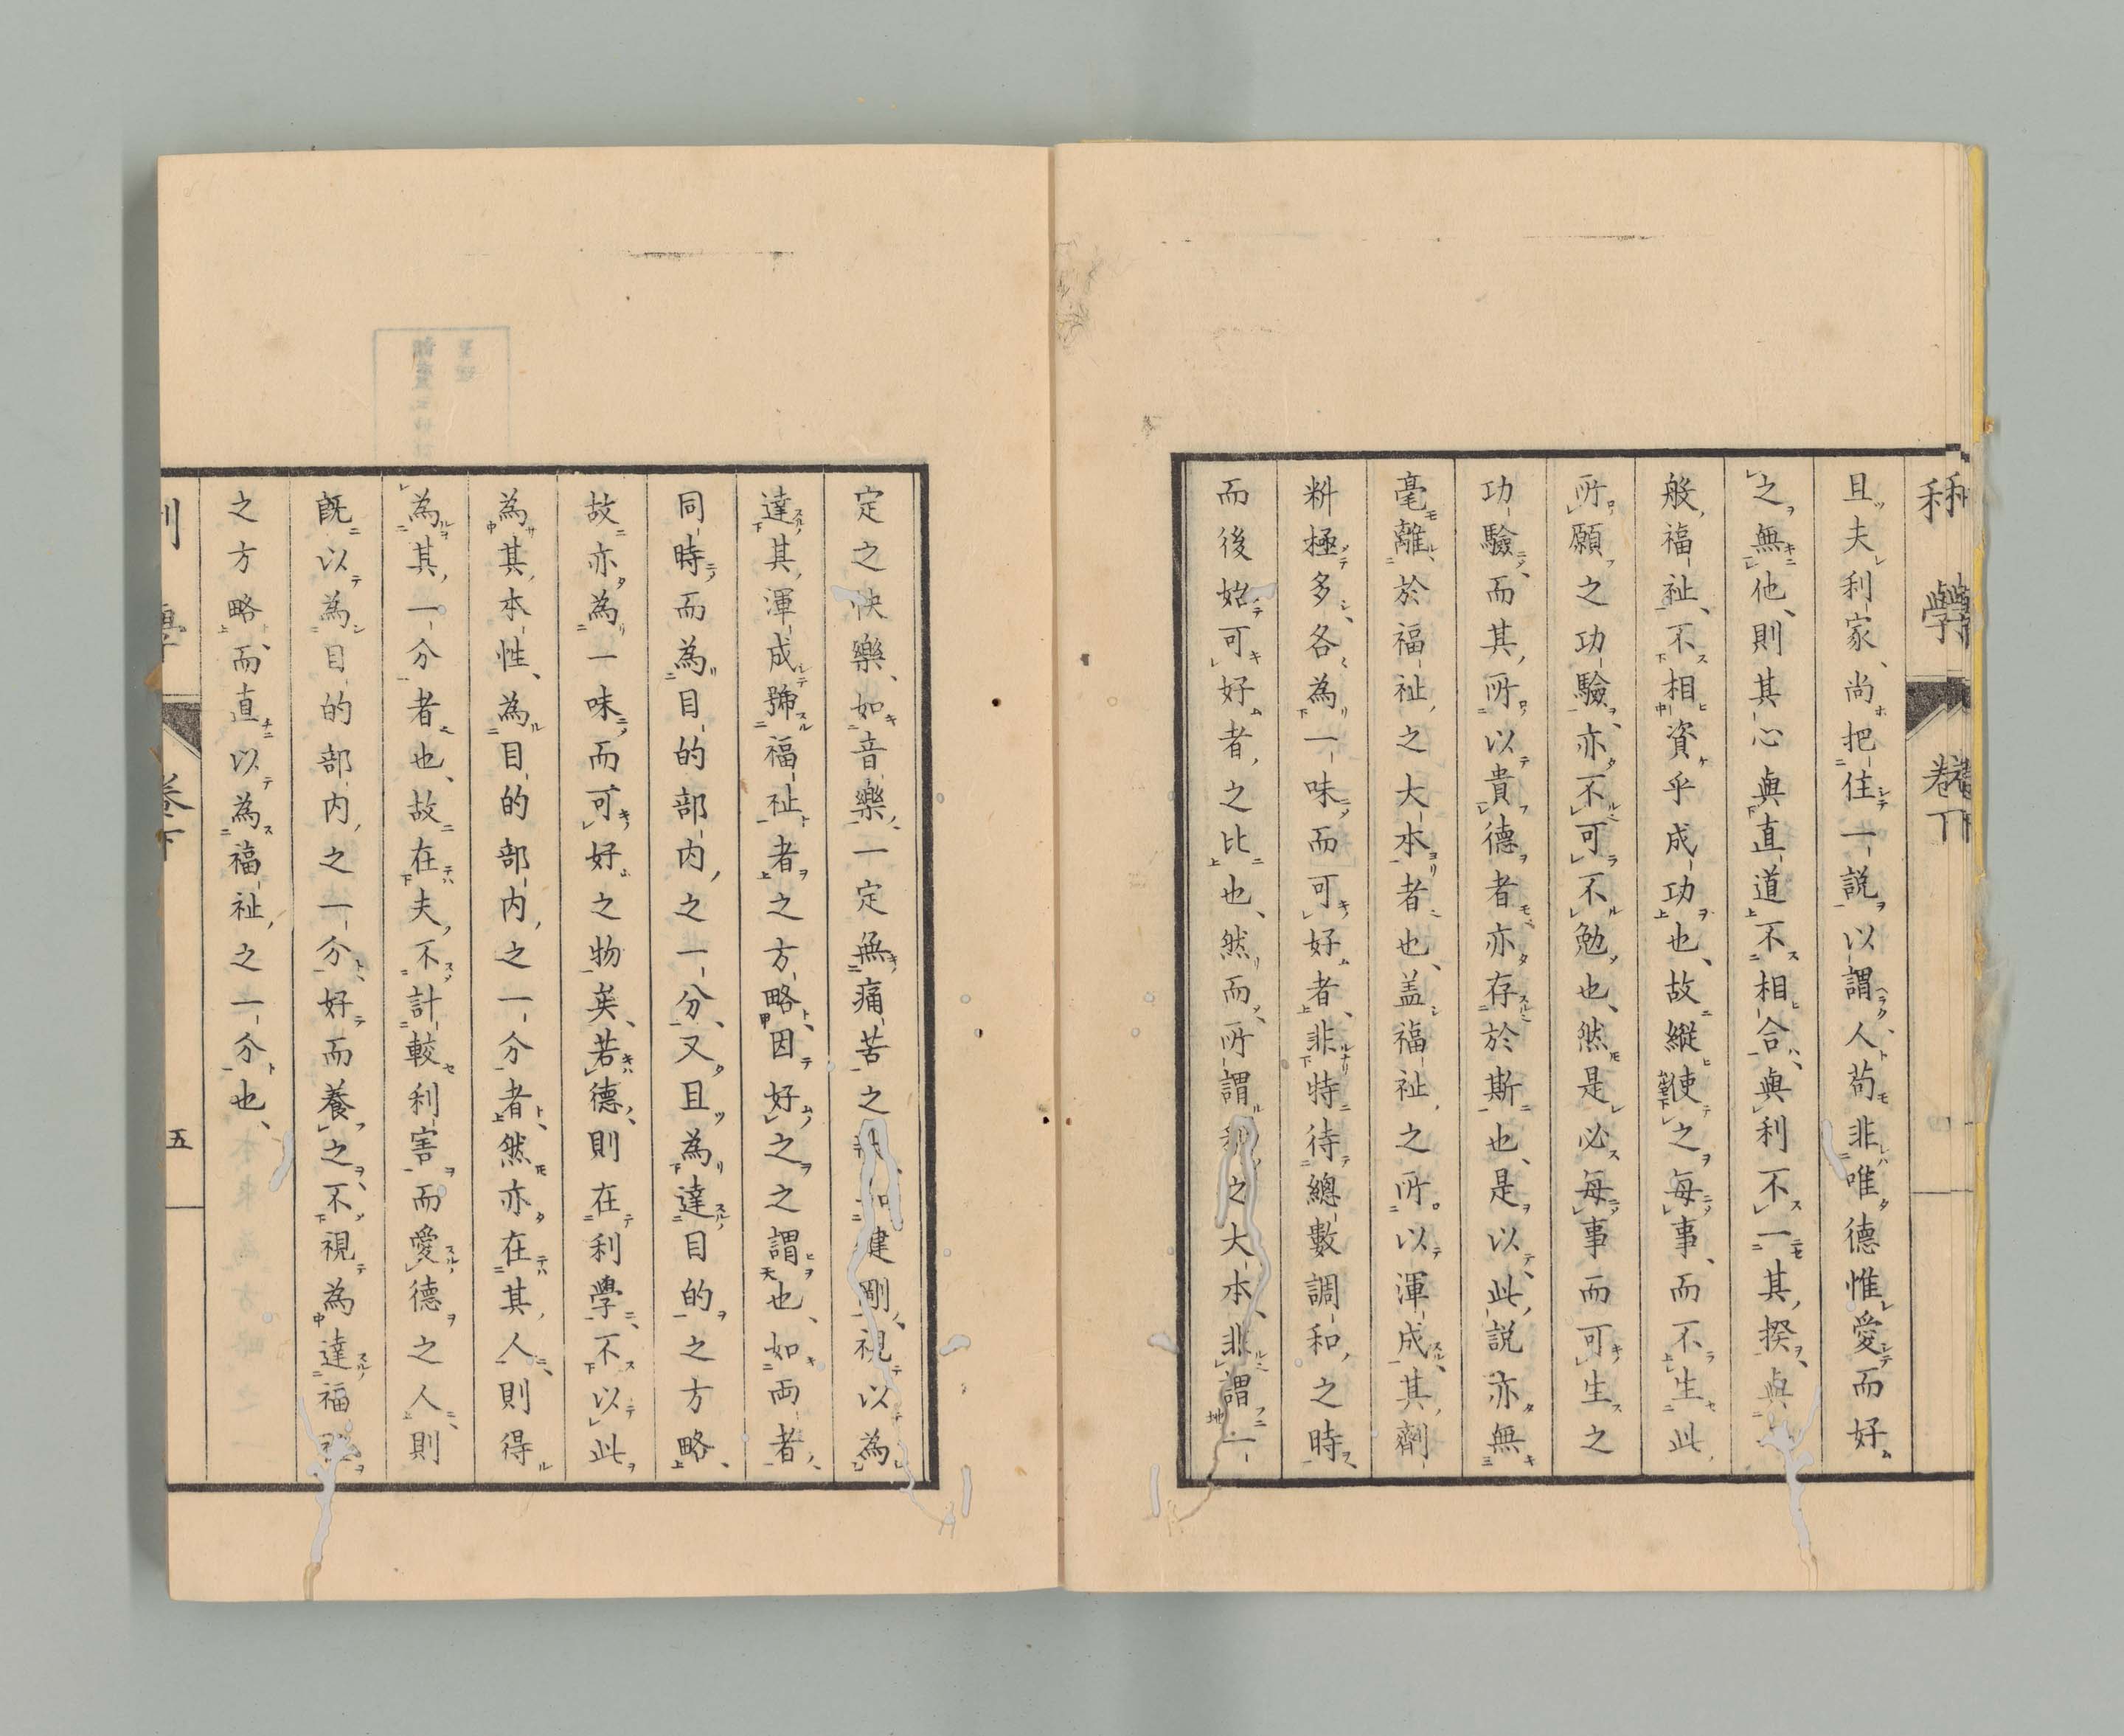 且夫利家、尚把住一説以謂、人苟非唯德惟愛而好
之無他、則其心與直道不相合、與利不一其揆、與
般福祉、不相資乎成功也、故縱使之每事、而不生此
所願之功驗、亦不可不勉也、然是必每事而可生之
功驗、而其所以貴德者、亦存於斯也、是以、此説亦無
毫離於福祉之大本者也、盖福祉之所以渾成其劑
料極多、各為一味而可好者、非特待總數調和之時、
而後始可好者之比也、然而所謂 之大本、非謂一
定之快樂、如音樂、一定無痛苦之 健剛、視以為
達其渾成號福祉者之方略、因好之之謂也、如両者、
同時而為目的部内之一分、又且為達目的之方略、
故亦為一味而可好之物矣、若德、則在利學、不以此
為其本性、為目的部内之一分者、然亦在其人、則得
為其一分者也、故在夫不計較利害而愛德之人、則
既以為目的部内之一分、好而養之、不視為達福
之方略、而直以為福祉之一分也、
學
卷下
五